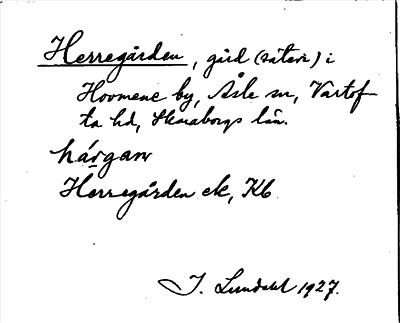 Herregården, gård (säteri) i
Hovmene by, Åsle sn, Vartof-
ta hd, Skaraborgs län.
hárgaṇ
Herregården ek, Kb
I. Lundahl 1927.